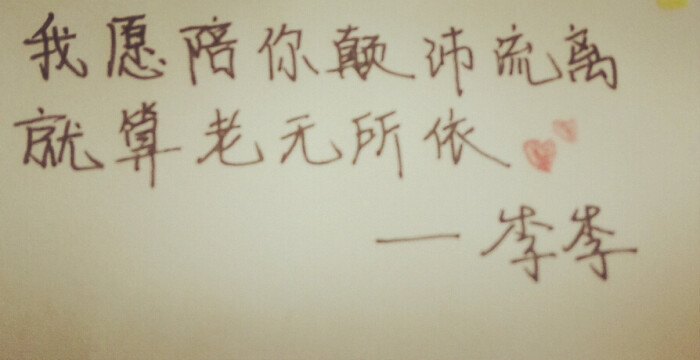 我愿陪你颠沛流离
就算老无所依
—李李